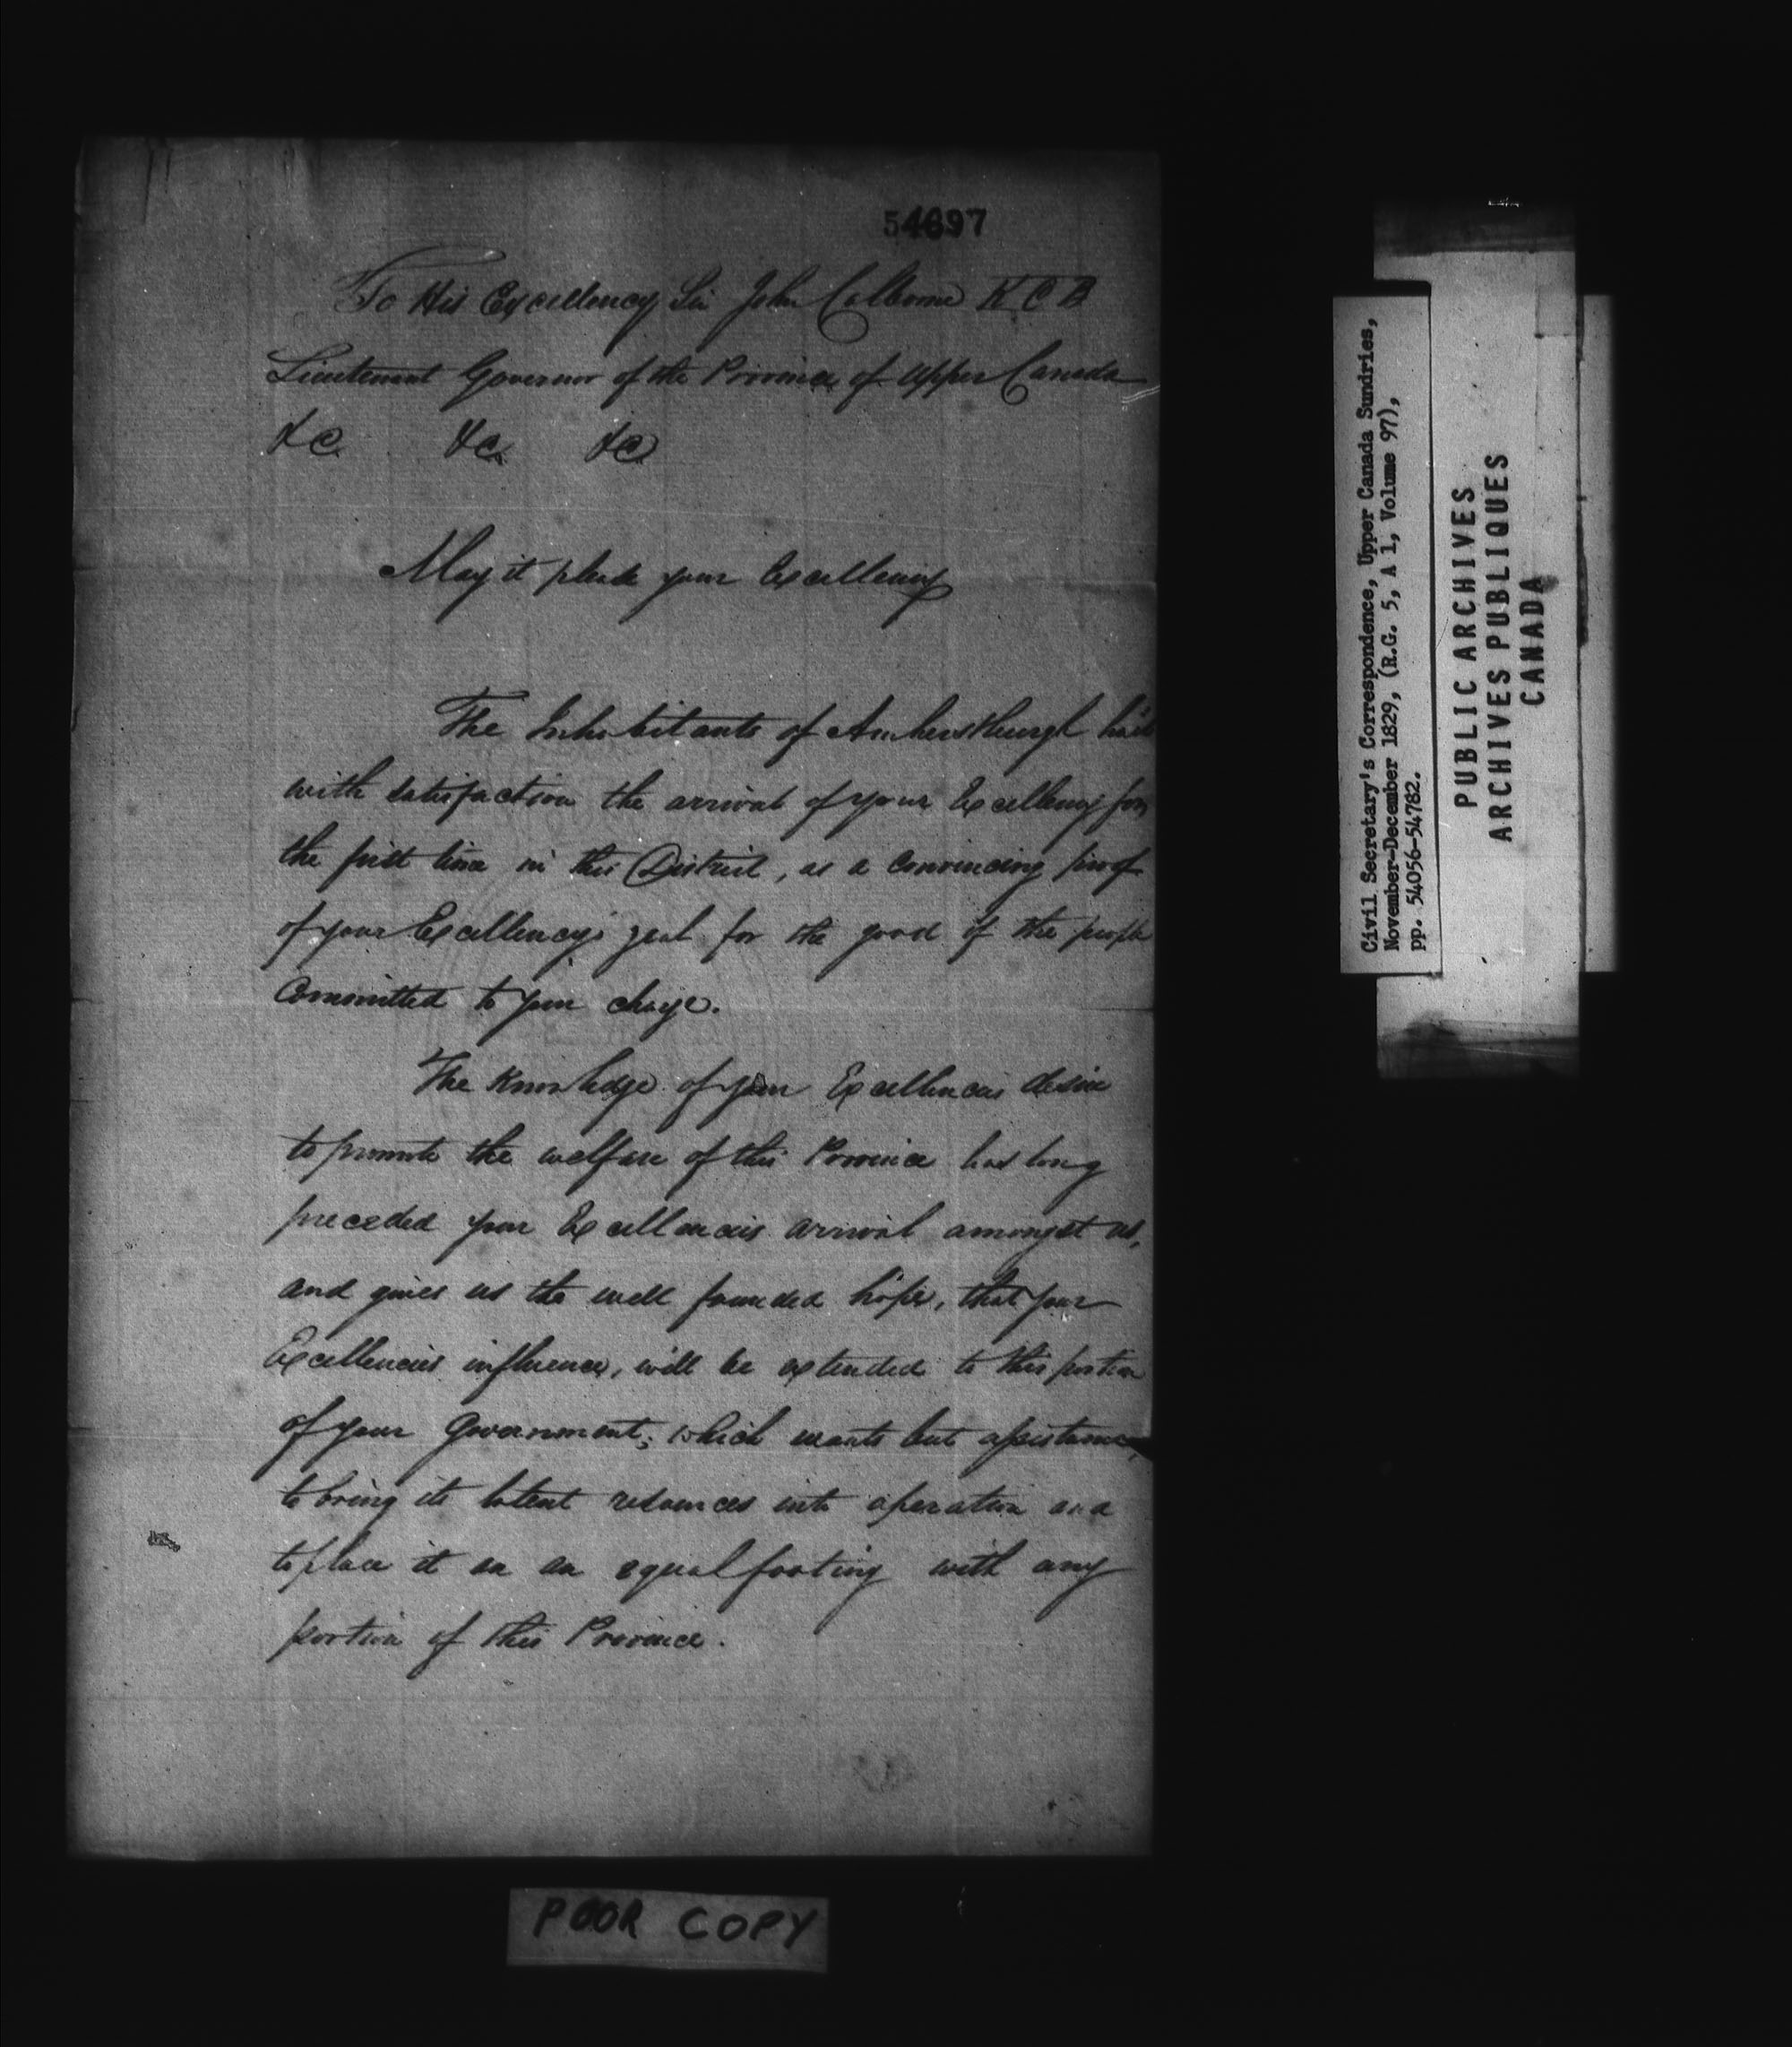 54697
To His Excellency Sir John Colborne K C B
Lieutenant Governor of the Province of Upper Canada
&c &c &c
May it please your Excellency
The Inhabitants of Amherstburgh hail
with satisfaction the arrival of your Excellency for
the first time in this District, as a convincing proof
of your Excellency's zeal for the good of the people
Committed to your charge.
The Knowledge of your Excellencies desire
to promote the welfare of this Province has long
preceded your Excellencies arrival amongst us,
and gives us the well founded hope, that your
Excellencies influence, will be extended to this portion
of your Government; which wants but assistance
to bring its latent resources into operation and
to place it on an equal footing with any
portion of this Province.
POOR COPY
Civil Secretary's Correspondence, Upper Canada Sundries,
November-December 1829, (R.G. 5, A 1, Volume 97),
pp. 54056-54782.
PUBLIC ARCHIVES
ARCHIVES PUBLIQUES
CANADA